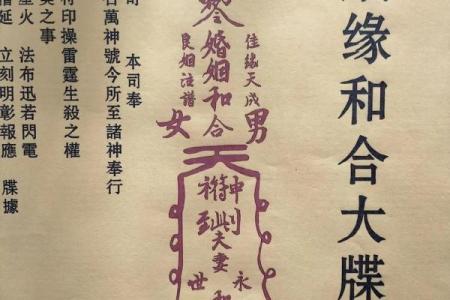 缘和合大牒
佳缘天成
男
令婚姻和合
良姻注谱
女
神到
符到
此夫妻
永世和
本司奉
萬神號今所至諸神奉行
印操雷霆生殺之權
之事
星火 法布迅若閃電
稽延 立刻明彰報應 牒據